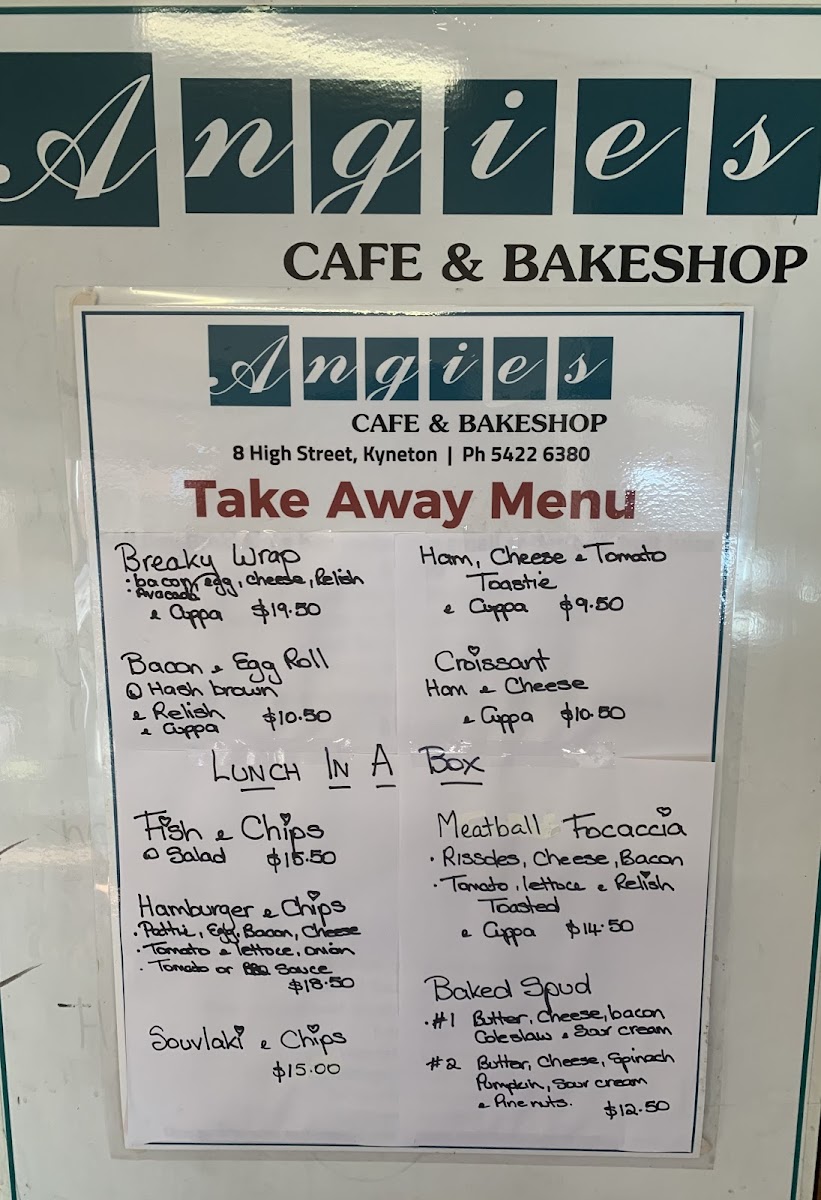 Angies
CAFE & BAKESHOP
Angies
CAFE & BAKESHOP
8 High Street, Kyneton | Ph 5422 6380
Take Away Menu
Breaky Wrap
• bacon, egg, cheese, Relish
• Avacado
& Cuppa $19.50
Bacon & Egg Roll
Hash brown
& Relish
& Cuppa $10.50
Ham, Cheese & Tomato
Toastie
& Cuppa $9.50
Croissant
Ham & Cheese
& Cuppa $10.50
LUNCH IN A BOX
Fish & Chips
Salad $15.50
Hamburger & Chips
• Pattie, Egg, Bacon, Cheese
• Tomato & lettuce, onion
• Tomato or BBQ Sauce
$18.50
Souvlaki & Chips
$15.00
Meatball Focaccia
• Rissoles, Cheese, Bacon
• Tomato, lettuce & Relish
Toasted
& Cuppa $14.50
Baked Spud
• #1 Butter, Cheese, bacon
Coleslaw & Sour cream
#2 Butter, Cheese, Spinach
Pumpkin, Sour cream
& Pinenuts. $12.50